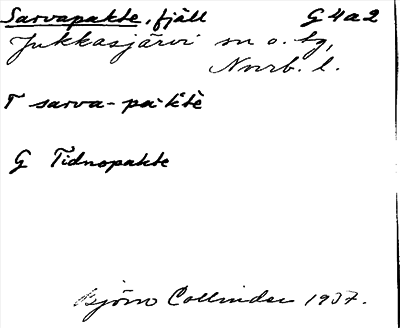 Sarvapakte, fjäll G 4 a 2
Jukkasjärvi sn o. tg,
Norrb. l.
T sarva-pa·ktè
G Tidnopakte
Björn Collinder 1937.